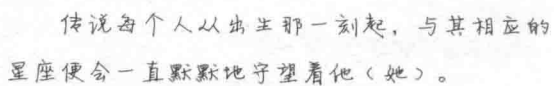 传说每个人从出生那一刻起，与其相应的
星座便会一直默默地守望着他（她）。